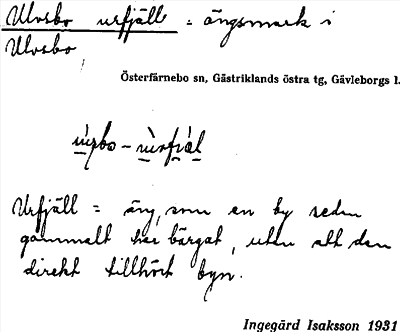 Ulvsbo urfjäll = ängsmark i
Ulvsbo,
Österfärnebo sn, Gästriklands östra tg, Gävleborgs l.
Urfjäll = äng, som en by sedan
gammalt har bärgat, utan att den
direkt tillhört byn.
Ingegärd Isaksson 1931